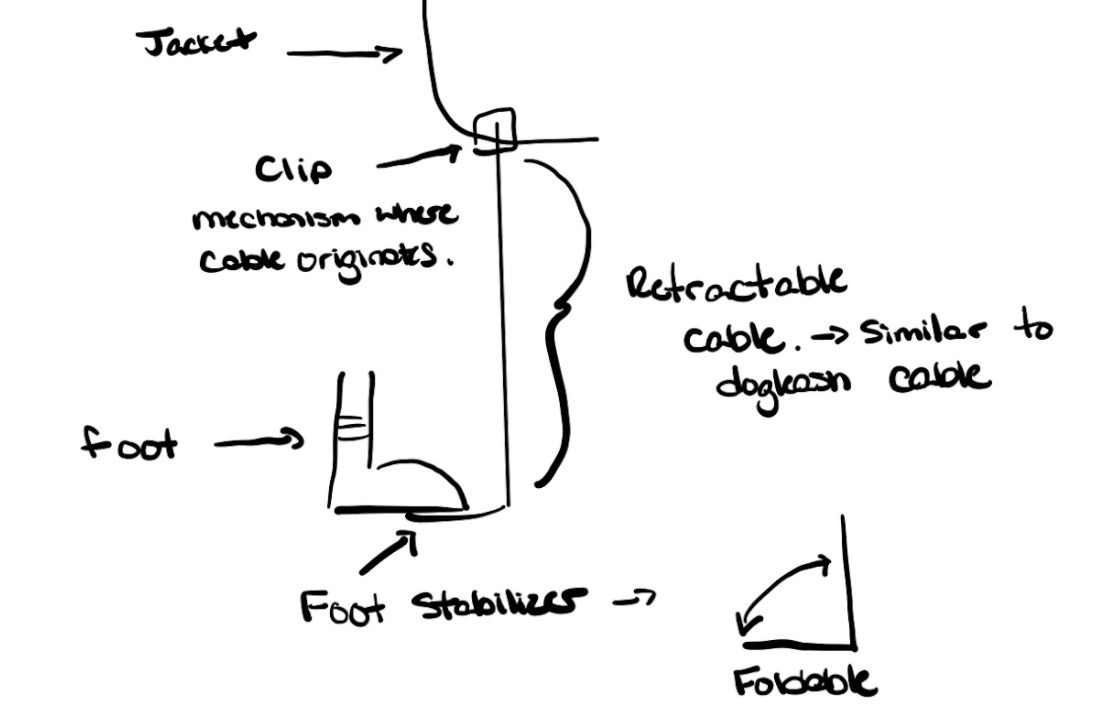 Jacket
Clip
mechanism where
cable originates.
Retractable
cable. → Similar to
dogleash cable
Foot
Foot Stabilizer →
Foldable